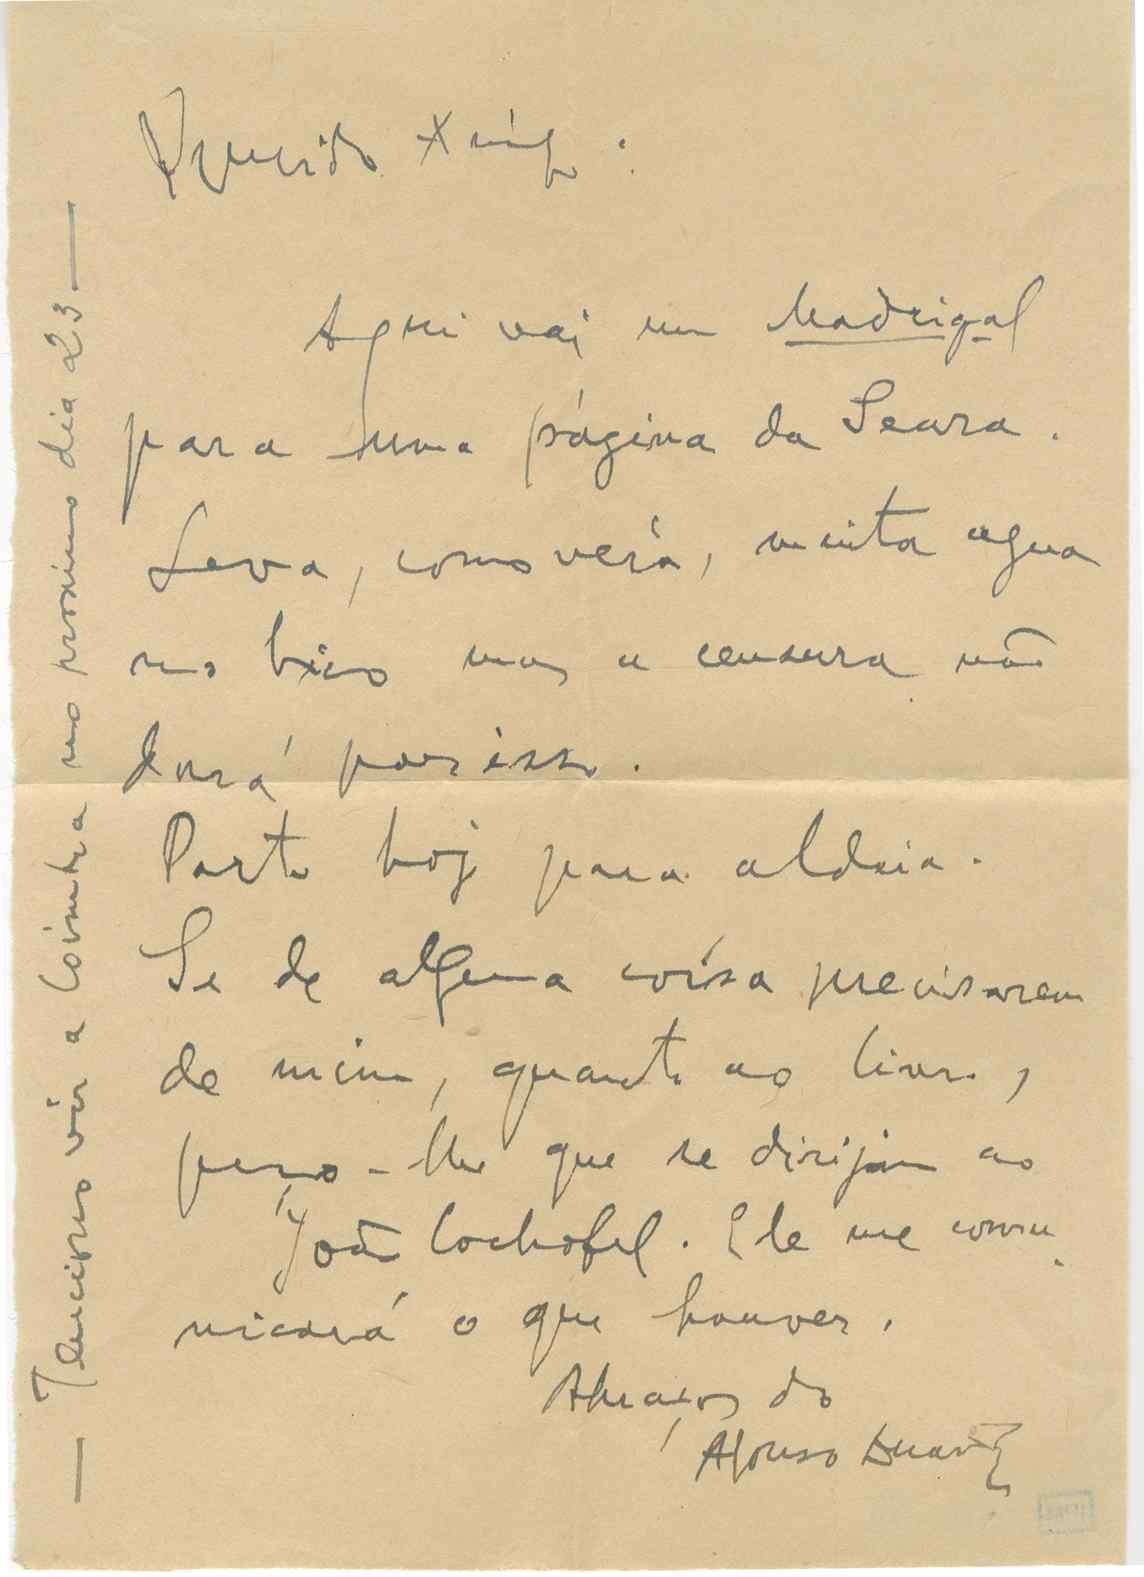 Querido Amigo:
Aqui vai um Madrigal
para uma página da Seara.
Leva, como verá, muita agua
no bico mas a censura não
dará por isso.
Parto hoje para aldeia.
Se de alguma coisa precisarem
de mim, quanto ao livro,
peço-lhe que se dirijam ao
João Cochofel. Ele me comu
nicará o que houver.
Abraços do
Afonso Duarte
— Tenciono vir a Coimbra no proximo dia 23 —